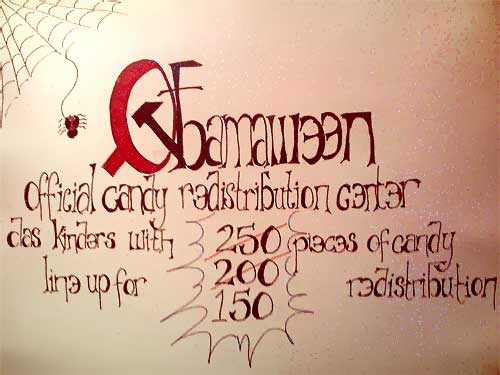 Obamaween
official candy redistribution center
das kinders with 250 pieces of candy
200
line up for redistribution
150